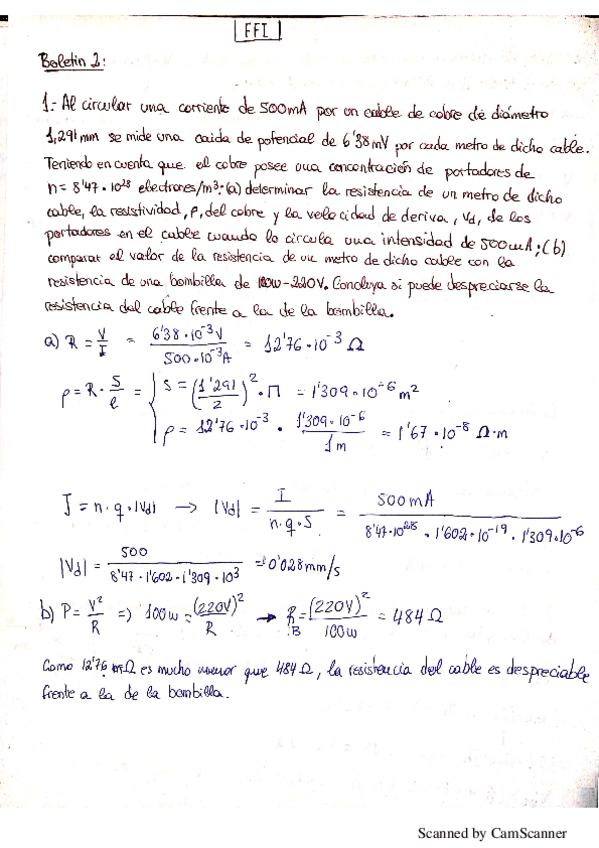 FFI
Boletín 2:
1.- Al circular una corriente de 500mA por un cable de cobre de diámetro
1,291mm se mide una caida de potencial de 6'38mV por cada metro de dicho cable.
Teniendo en cuenta que el cobre posee una concentración de portadores de
n= 8'47·10²⁸ electrones/m³: (a) determinar la resistencia de un metro de dicho
cable, la resistividad, ρ, del cobre y la velocidad de deriva, Vd, de los
portadores en el cable cuando lo circula una intensidad de 500mA; (b)
comparar el valor de la resistencia de un metro de dicho cable con la
resistencia de una bombilla de 100W-220V. Concluya si puede despreciarse la
resistencia del cable frente a la de la bombilla.
a) R = V/I = 6'38·10⁻³V / 500·10⁻³A = 12'76·10⁻³ Ω
ρ = R · S/l = { S = (1'291/2)² · Π = 1'309·10⁻⁶ m²
ρ = 12'76·10⁻³ · 1'309·10⁻⁶ / 1m = 1'67·10⁻⁸ Ω·m
J = n·q·|Vd| → |Vd| = I / n·q·S = 500mA / 8'47·10²⁸ · 1'602·10⁻¹⁹ · 1'309·10⁻⁶
|Vd| = 500 / 8'47·1'602·1'309·10³ = 0'028mm/s
b) P = V²/R => 100w = (220V)²/R → R_B = (220V)²/100w = 484 Ω
Como 12'76 mΩ es mucho menor que 484 Ω, la resistencia del cable es despreciable
frente a la de la bombilla.
Scanned by CamScanner